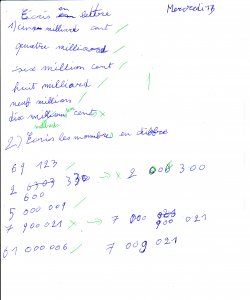 Mercredi 13
Écris en lettre
1) cinq milliard cent
quatre milliard
six million cent
huit milliard
neuf millions
dix millions cents
milliard
2) Écris les nombres en chiffre
69 123
2 330 600 → 2 006 300
5 000 009
7 900 021 → 7 000 900 021
61 000 006 7 009 021